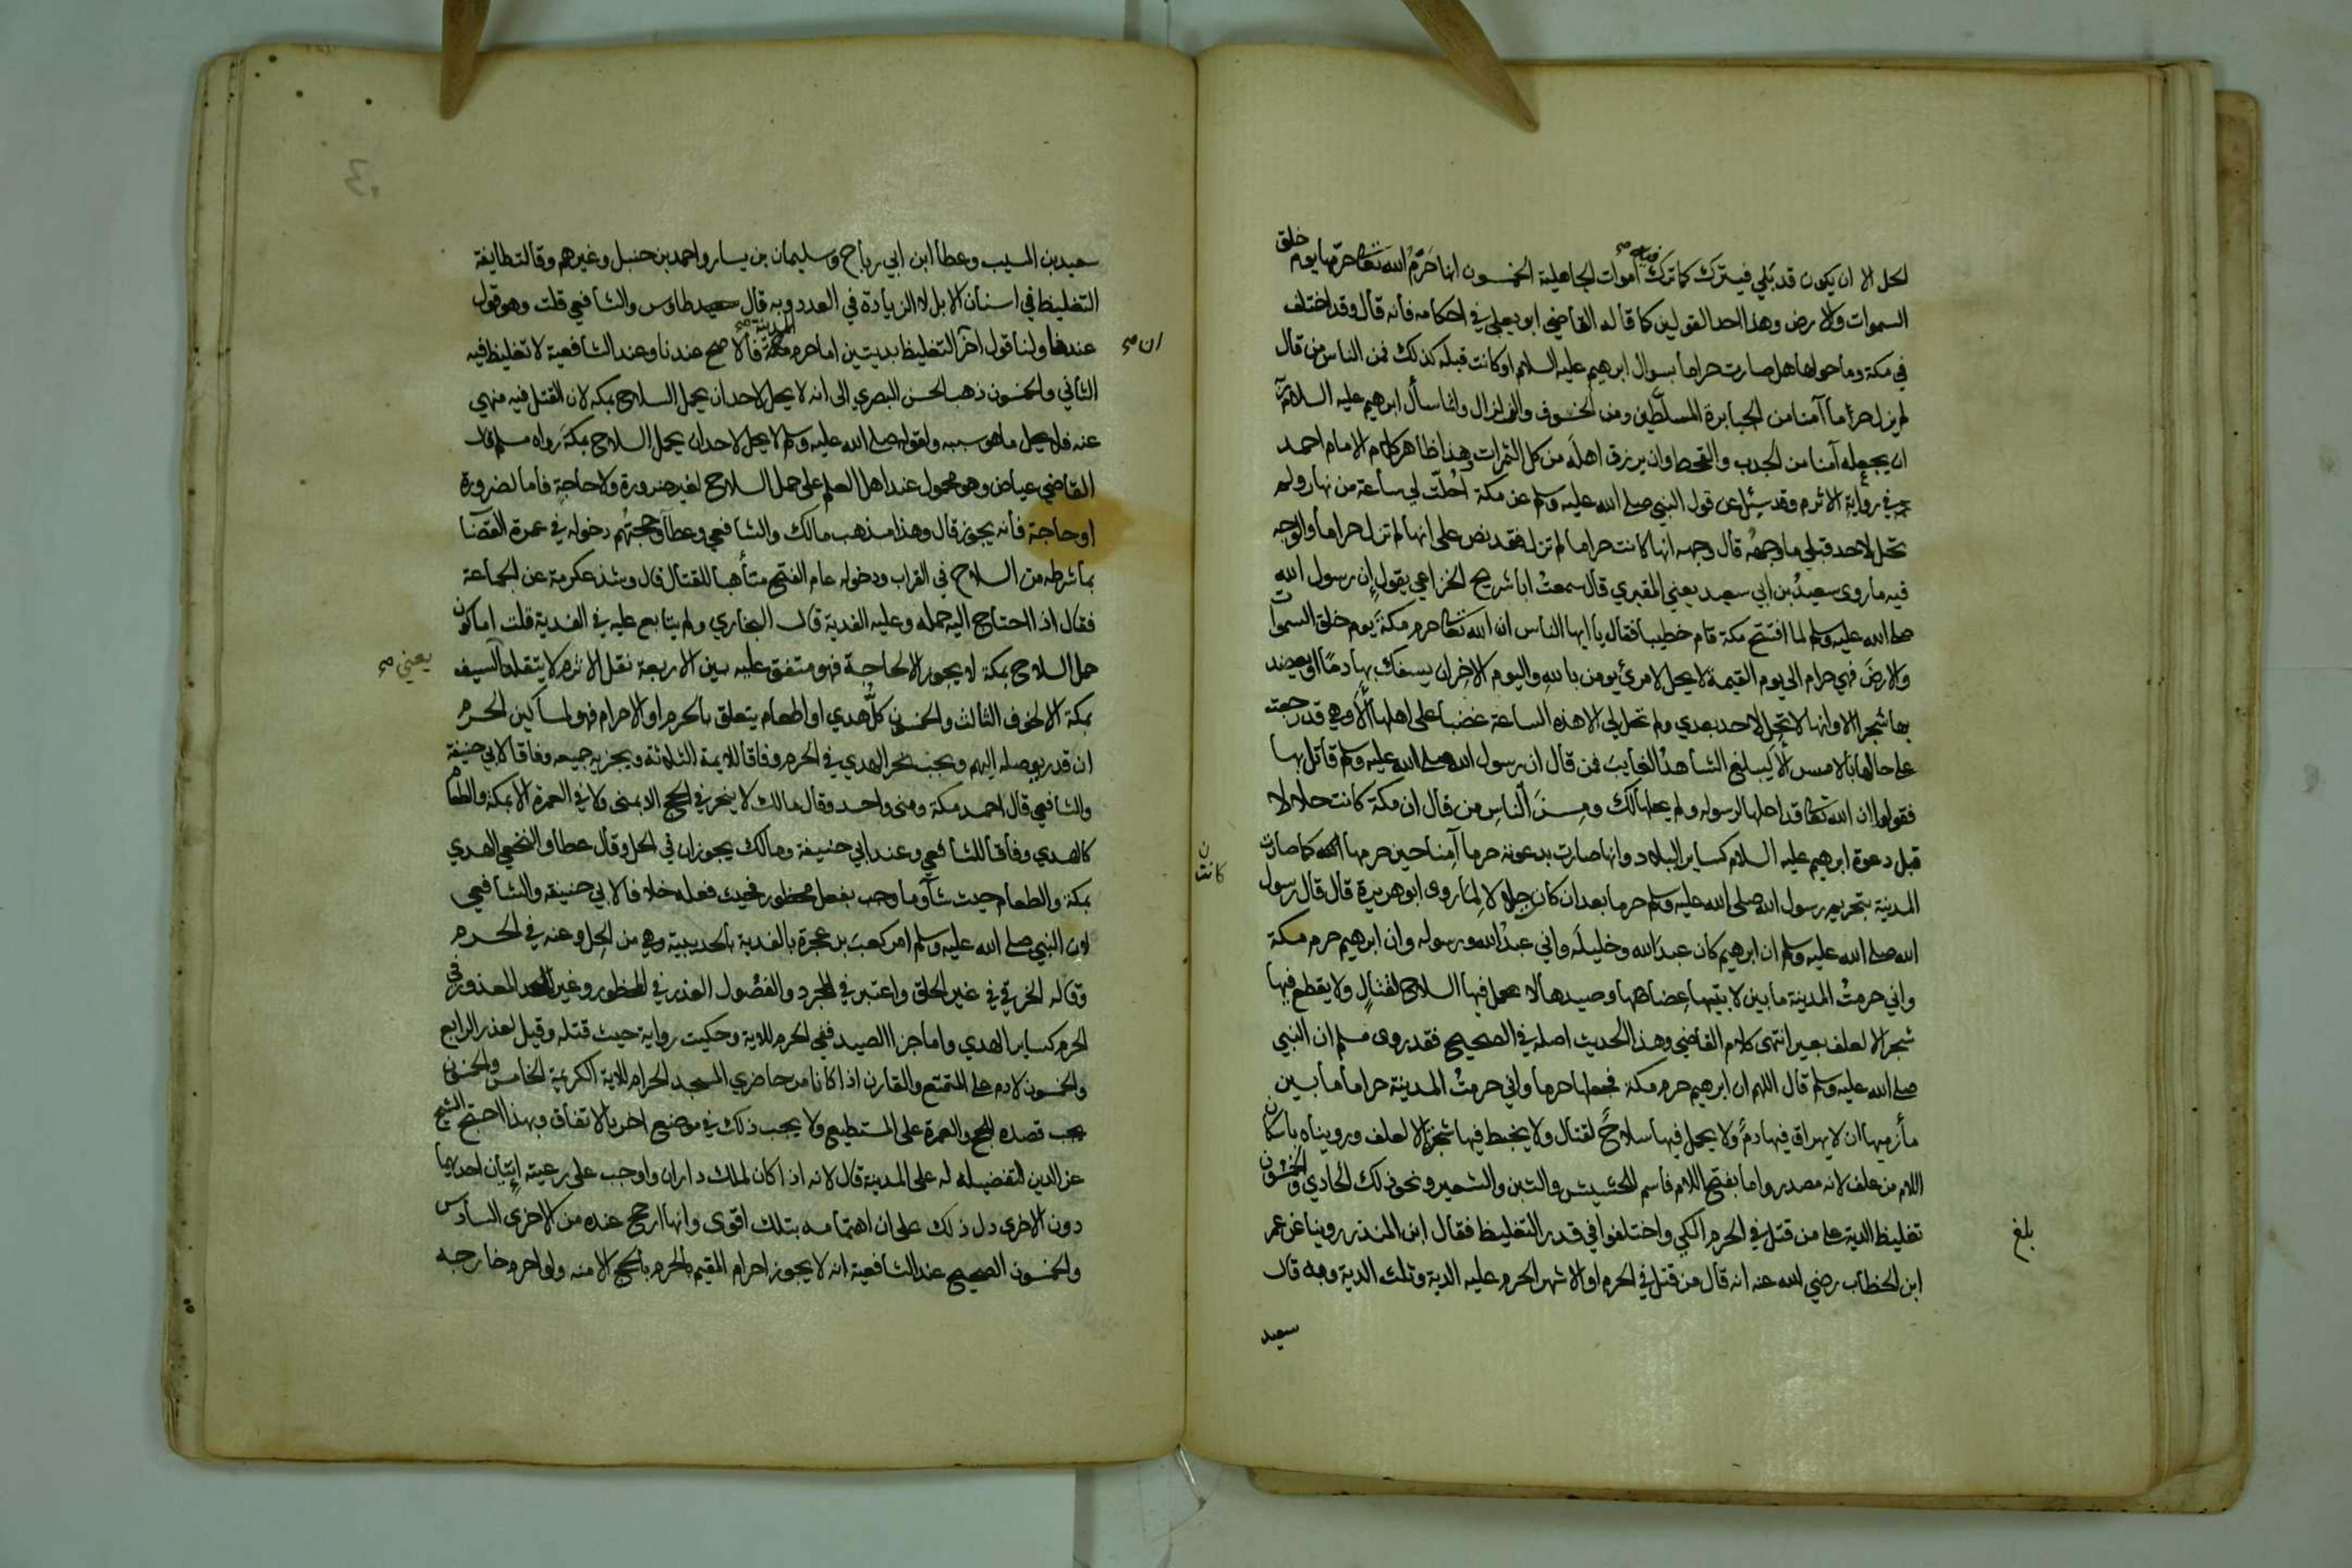 الحل الا ان يكون قد بَلي فيترك كما ترك فيه اموات الجاهلية الخمسون انها حَرَّمَ الله تعالى حرمها يوم خلق
السموات والارض وهذا احد القولين كما قاله القاضي ابو يعلي في احكامه فانه قال وقد اختلف
في مكة وما حولها هل صارت حراما بسوال ابرهيم عليه السلام او كانت قبله كذلك فمن الناس من قال
لم يزل حراما آمنا من الجبابرة المسلّطين ومن الخسوف والزلزال وانما سأل ابرهيم عليه السلام
ان يجعله آمنا من الجدب والقحط وان يرزق اهلَه من كل الثمرات وهذا ظاهر كلام الامام احمد
في رواية الاثرم وقد سئل عن قول النبي صلى الله عليه وسلم عن مكة أحلّت لي ساعة من نهار ولم
تحل لاحد قبلي ما وجهه قال وجهه انها كانت حراما لم تزل فقد نص على انها لم تزل حراما والوجه
فيه ما روى سعيدُ بن ابي سعيد يعني المقبري قال سمعتُ ابا شريح الخزاعي يقول إن رسول الله
صلى الله عليه وسلم لما افتتح مكة قام خطيبا فقال يا ايها الناس ان الله تعالى حرم مكةَ يوم خلق السموات
والارضَ فهي حرام الى يوم القيمة لا يحل لامرئ يومن بالله واليوم الاخر ان يسفك بها دمًا او يعضد
بها شجرا الا وانها لا تحل لاحد بعدي ولم تحل لي الا هذه الساعة غضبا على اهلها ألا وهي قد رجعت
على حالها بالامس ألا ليبلغ الشاهدُ الغايبَ فمن قال ان رسول الله صلى الله عليه وسلم قاتل بها
فقولوا ان الله تعالى قد احلها لرسوله ولم يحلها لك ومِنَ النّاسِ من قال ان مكة كانت حلالا
قبل دعوة ابرهيم عليه السلام كساير البلاد وانها صارت بدعوته حرما آمنا حين حرمها كما صارت
المدينة بتحريم رسول الله صلى الله عليه وسلم حرما بعد ان كان حلالا لِمَا روى ابو هريرة قال قال رسول
الله صلى الله عليه وسلم ان ابرهيم كان عبدَ الله وخليلَه واني عبدُ الله ورسوله وان ابرهيم حرم مكة
واني حرمتُ المدينة ما بين لابتيها عِضاهها وصيدها لا يحمل فيها السلاح لقتالٍ ولا يقطع فيها
شجر الا لعلف بعير انتهى كلام القاضي وهذا الحديث اصله في الصحيح فقد روى مسلم ان النبي
صلى الله عليه وسلم قال اللهم ان ابرهيم حرم مكة فجعلها حرما واني حرمتُ المدينة حراما ما بين
مأزميها ان لا يهراق فيها دمٌ ولا يحمل فيها سلاحٌ لقتال ولا يخبط فيها شجرة الا لعلف ورويناه باسكان
اللام من علف لانه مصدر واما بفتح اللام فاسم للحشيش والتبن والشعير ونحو ذلك الحادي والخمسون
تغليظ الدية على من قتل في الحرم المكي واختلفوا في قدر التغليظ فقال ابن المنذر روينا عن عمر
ابن الخطاب رضي الله عنه انه قال من قتل في الحرم او الاشهر الحرم عليه الدية وثلث الدية وبه قال
سعيد
بلغ
ن كانت
سعيد بن المسيب وعطا ابن ابي رباح وسليمان بن يسار واحمد بن حنبل وغيرهم وقالت طايفة
التغليظ في اسنان الابل لا الزيادة في العدد وبه قال طاوس والشافعي قلت وهو قول
عندنا ولنا قول آخر التغليظ بديتين اما حرم المدينة فالاصح عندنا وعند الشافعية لا تغليظ فيه
الثاني والخمسون ذهب الحسن البصري الى انه لا يحل لاحد ان يحمل السلاح بمكه لان القتل فيه منهي
عنه فلا يحل ما هو سببه ولقوله صلى الله عليه وسلم لا يحل لاحد ان يحمل السلاح بمكةَ رواه مسلم قال
القاضي عياض وهو محمول عند اهل العلم على حمل السلاح لغير ضرورة ولا حاجةٍ فاما لضرورة
او حاجة فانه يجوز قال وهذا مذهب مالك والشافعي وعطآ وحجتهُم دخوله في عمرة القضا
بما شرطه من السلاح في القراب ودخوله عام الفتح متأهبا للقتال قال وشذ عكرمة عن الجماعة
فقال اذا احتاج اليه حمله وعليه الفدية قال البخاري ولم يتابع عليه في الفدية قلت اما كون
حمل السلاح بمكة لا يجوز الا لحاجة فهو متفق عليه بين الاربعة نقل الاثرم لا يتقلد السيف
بمكة الا لخوف الثالث والخمسون كلُّ هدي او اطعام يتعلق بالحرم او الاحرام فهو لمساكين الحرم
ان قدر يوصله اليهم ويجب نحر الهدي في الحرم وفاقا للايمة الثلاثة ويجزيه جميعه وفاقا لابي حنيفة
والشافعي قال احمد مكة ومنى واحد وقال مالك لا ينحر في الحج الا بمنى ولا في العمرة الا بمكة والطعام
كالهدي وفاقا للشافعي وعند ابي حنيفة ومالك يجوزان في الحل وقال عطا والنخعي الهدي
بمكة والطعام حيث شآ وما وجب بفعل محظور فحيث فعله خلافا لابي حنيفه والشافعي
لان النبي صلى الله عليه وسلم امر كعبَ بن عجرة بالفدية بالحديبية وهي من الحِل وعنه في الحرم
وقاله الخرقي في غير الحلق واعتبر في المجرد والفصُول العذر في المحظور وغير المعذور في
الحرم كساير الهدي واما جزا الصيد ففي الحرم للاية وحكيت رواية حيث قتله وقيل لعذر الرابع
والخمسون لا دم على المتمتع والقارن اذا كانا من حاضري المسجد الحرام للاية الكريمة الخامس والخمسون
يجب قصده للحج والعمرة على المستطيع ولا يجب ذلك في موضع اخر بالاتفاق وبهذا احتج الشيخ
عز الدين لتفضيله له على المدينة قال لانه اذا كان لملك داران واوجب على رعيته إتيان احديهما
دون الاخرى دل ذلك على ان اهتمامه بتلك اقوى وانها ارجح عنده من الاخرى السادس
والخمسون الصحيح عند الشافعية انه لا يجوز احرام المقيم بالحرم بالحج الا منه ولو احرم خارجه
ان صح
يعني صح